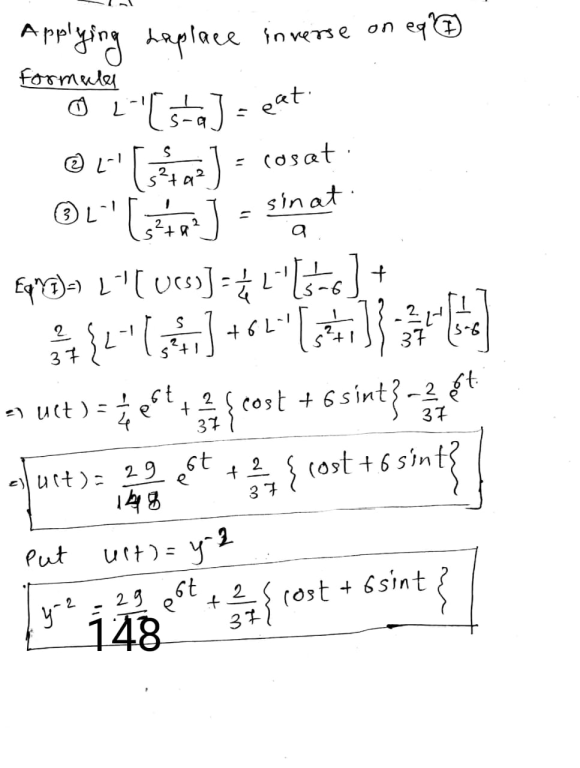 Applying Laplace inverse on eqⁿ Ⓘ
Formules
① L⁻¹[1/(s-a)] = e^{at}.
② L⁻¹[s/(s²+a²)] = cosat.
③ L⁻¹[1/(s²+a²)] = sinat/a.
Eqⁿ Ⓘ => L⁻¹[U(s)] = 1/4 L⁻¹[1/(s-6)] +
2/37 {L⁻¹[s/(s²+1)] + 6L⁻¹[1/(s²+1)]} - 2/37 L⁻¹[1/(s-6)]
=> u(t) = 1/4 e^{6t} + 2/37 {cost + 6sint} - 2/37 e^{6t}.
=> u(t) = 29/148 e^{6t} + 2/37 {cost + 6sint}
Put u(t) = y⁻²
y⁻² = 29/148 e^{6t} + 2/37 {cost + 6sint}